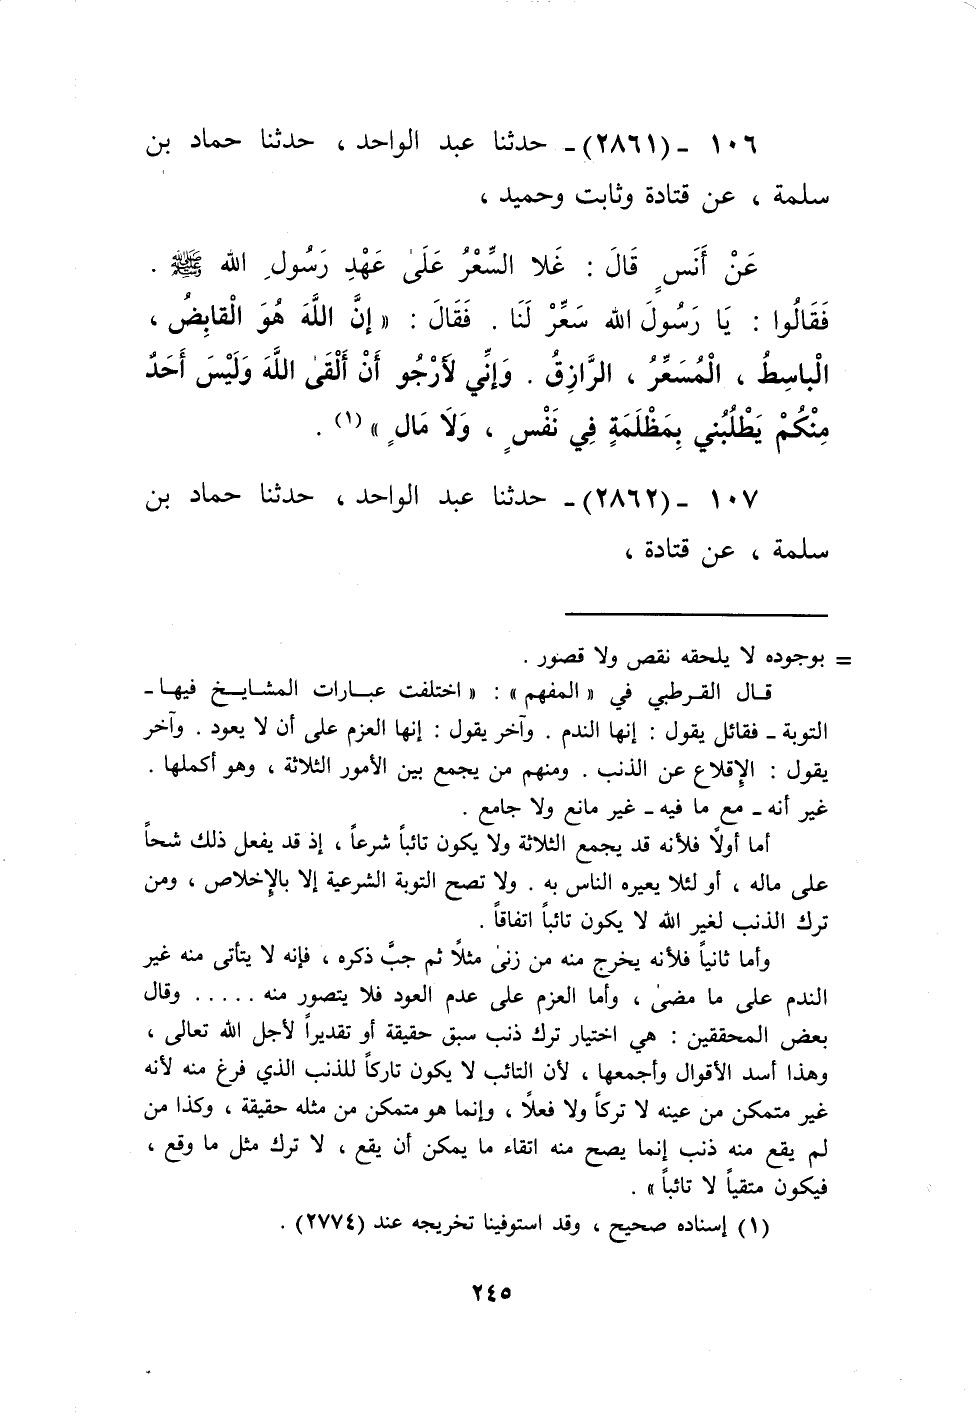 ١٠٦ ـ (٢٨٦١) ـ حدثنا عبد الواحد ، حدثنا حماد بن
سلمة ، عن قتادة وثابت وحميد ،
عَنْ أَنَسٍ قَالَ : غَلا السِّعْرُ عَلَىٰ عَهْدِ رَسُولِ الله ﷺ .
فَقَالُوا : يَا رَسُولَ الله سَعِّرْ لَنَا . فَقَالَ : « إنَّ اللَّهَ هُوَ الْقَابِضُ ،
الْباسِطُ ، الْمُسَعِّرُ ، الرَّازِقُ . وَإِنِّي لأَرْجُو أَنْ أَلْقَىٰ اللَّهَ وَلَيْسَ أَحَدٌ
مِنْكُمْ يَطْلُبُني بِمَظْلَمَةٍ فِي نَفْسٍ ، وَلَا مَالٍ » (١) .
١٠٧ ـ (٢٨٦٢) ـ حدثنا عبد الواحد ، حدثنا حماد بن
سلمة ، عن قتادة ،
= بوجوده لا يلحقه نقص ولا قصور .
قال القرطبي في « المفهم » : « اختلفت عبارات المشايخ فيها ـ
التوبة ـ فقائل يقول : إنها الندم . وآخر يقول : إنها العزم على أن لا يعود . وآخر
يقول : الإقلاع عن الذنب . ومنهم من يجمع بين الأمور الثلاثة ، وهو أكملها .
غير أنه ـ مع ما فيه ـ غير مانع ولا جامع .
أما أولاً فلأنه قد يجمع الثلاثة ولا يكون تائباً شرعاً ، إذ قد يفعل ذلك شحاً
على ماله ، أو لئلا يعيره الناس به . ولا تصح التوبة الشرعية إلا بالإخلاص ، ومن
ترك الذنب لغير الله لا يكون تائباً اتفاقاً .
وأما ثانياً فلأنه يخرج منه من زنىٰ مثلاً ثم جبَّ ذكره ، فإنه لا يتأتى منه غير
الندم على ما مضىٰ ، وأما العزم على عدم العود فلا يتصور منه ..... وقال
بعض المحققين : هي اختيار ترك ذنب سبق حقيقة أو تقديراً لأجل الله تعالى ،
وهذا أسد الأقوال وأجمعها ، لأن التائب لا يكون تاركاً للذنب الذي فرغ منه لأنه
غير متمكن من عينه لا تركاً ولا فعلاً ، وإنما هو متمكن من مثله حقيقة ، وكذا من
لم يقع منه ذنب إنما يصح منه اتقاء ما يمكن أن يقع ، لا ترك مثل ما وقع ،
فيكون متقياً لا تائباً » .
(١) إسناده صحيح ، وقد استوفينا تخريجه عند (٢٧٧٤) .
٢٤٥